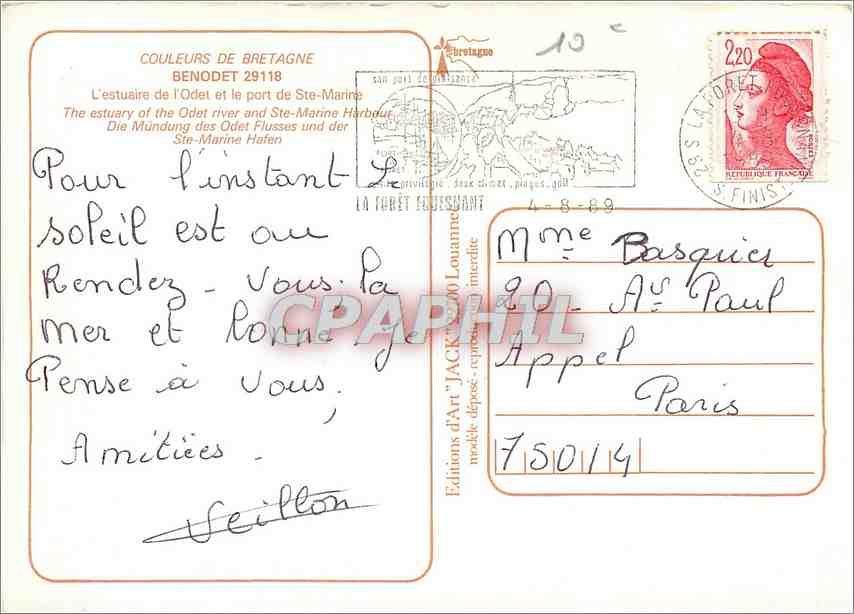 COULEURS DE BRETAGNE
BENODET 29118
L'estuaire de l'Odet et le port de Ste-Marine
The estuary of the Odet river and Ste-Marine Harbour
Die Mündung des Odet Flusses und der
Ste-Marine Hafen
Pour l'instant Le
soleil est au
Rendez - vous. la
mer et bonne je
Pense à vous.
Amitiées.
Veillon
bretagne
10 c
son port de plaisance
privilégié, deux climat, plages, golf
LA FORÊT FOUESNANT
4-8-89
2,20
REPUBLIQUE FRANÇAISE
29 S LA FORET
S. FINIS
Editions d'Art "JACK" Louannec
modèle déposé - reproduction interdite
Mme Basquier
20 - Av Paul
Appel
Paris
75014
CPAPHIL